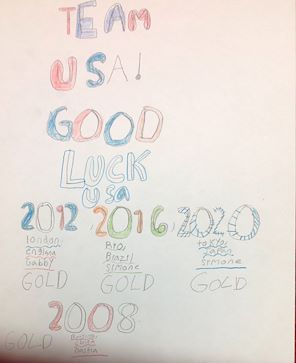 TEAM
USA!
GOOD
LUCK
USA
2012 2016 2020
london Rio, tokyo
england Brazil Japan
Gabby Simone Simone
GOLD GOLD GOLD
2008
GOLD Nastia